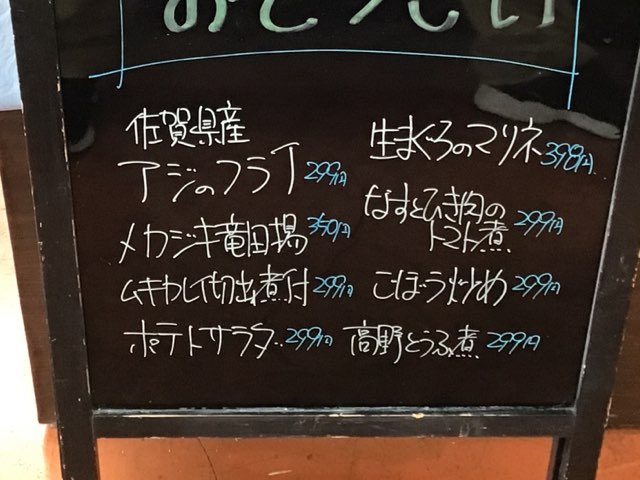 おとうしい
佐賀県産
アジのフライ 299円
メカジキ竜田場 350円
ムキカレイ切出し煮付 299円
ポテトサラダ 299円
生まぐろのマリネ 398円
なすとひき肉の
トマト煮 299円
ごぼう炒め 299円
高野とうふ煮 299円